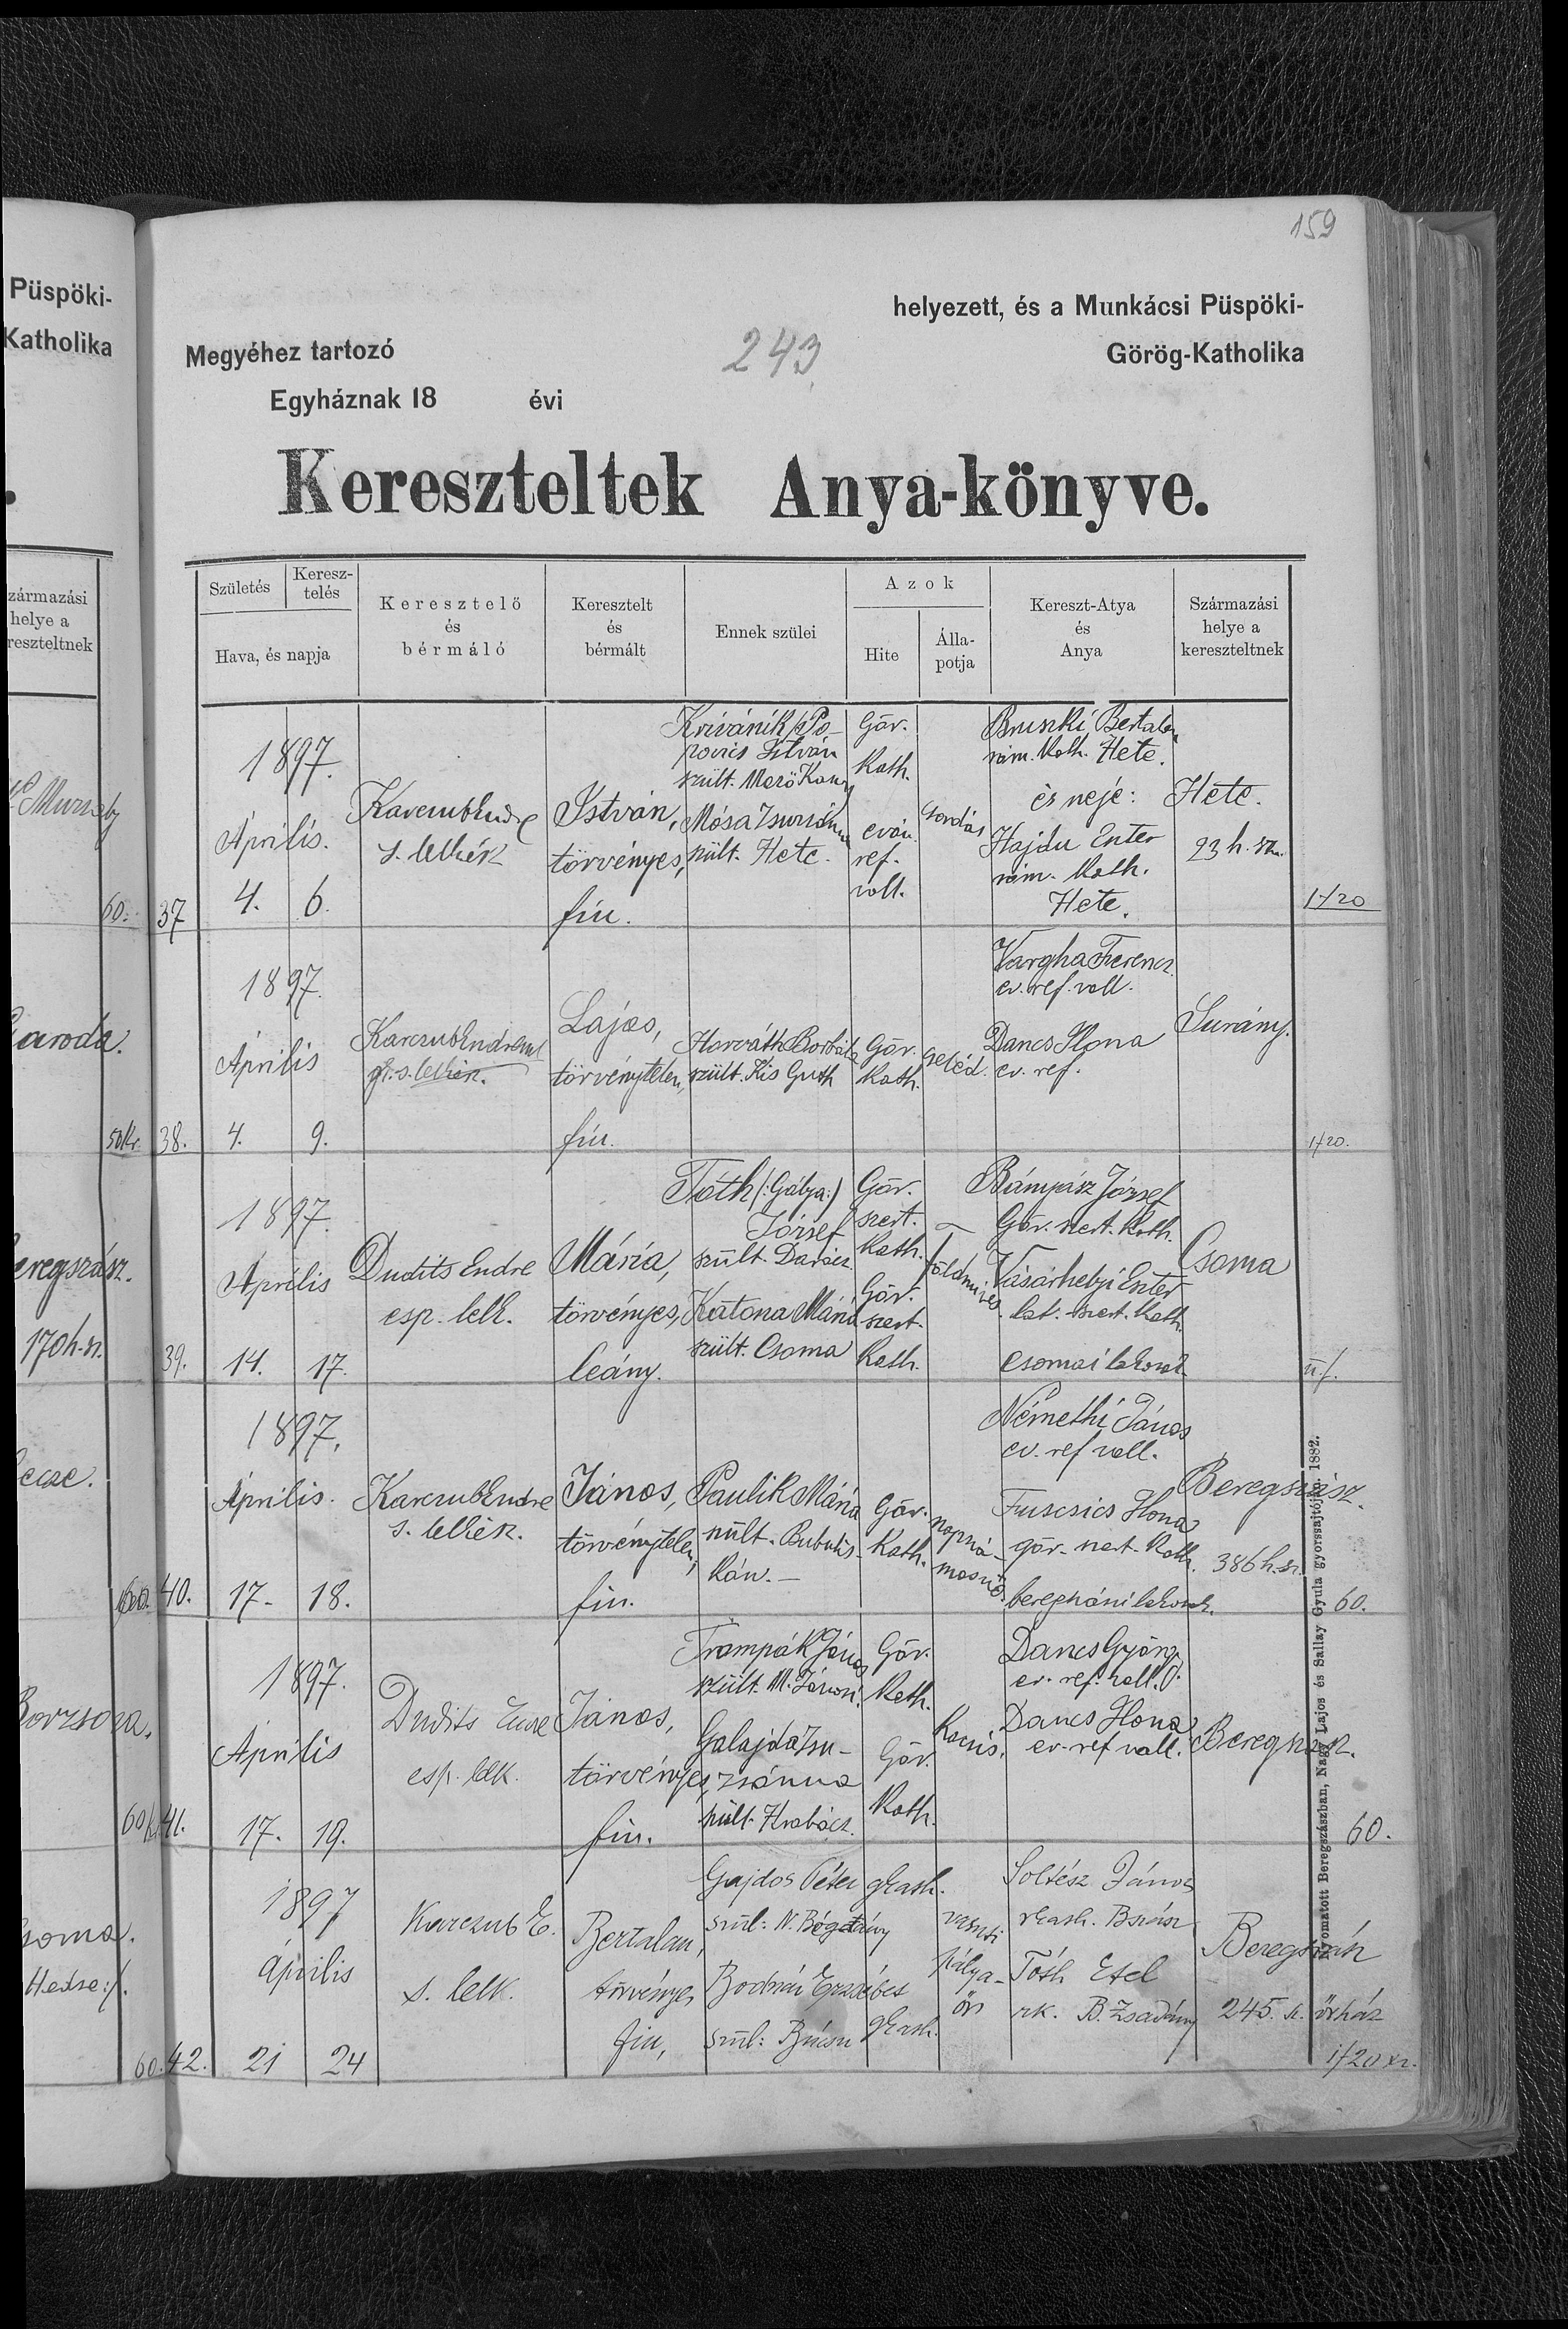 159
Püspöki-
Katholika
helyezett, és a Munkácsi Püspöki-
Megyéhez tartozó
243
Görög-Katholika
Egyháznak 18 évi
Kereszteltek Anya-könyve.
zármazási
helye a
reszteltnek
Születés
Keresz-
telés
Hava, és napja
Keresztelő
és
bérmáló
Keresztelt
és
bérmált
Ennek szülei
Azok
Hite
Álla-
potja
Kereszt-Atya
és
Anya
Származási
helye a
kereszteltnek
60.
37
1897.
Április.
4. 6.
s. lelkék
István,
törvényes,
fiu.
Krivánik
povics István
szült.
Mósa Zsuzsánna
szült. Hete.
Gör.
Kath.
evan.
ref.
vall.
Csordás
Bertalan
róm. Kath. Hete.
és neje:
Hajdu Eszter
róm. Kath.
Hete.
Hete.
23 h. sz.
1f20
aroda.
50kr.
38.
1897.
Április
4. 9.
Karczub Endre
s. lelkék.
Lajos,
törvénytelen,
fiu.
Horváth Borbála
szült. Kis Guth
Gör.
Kath.
cseléd.
Vargha Ferencz
ev. ref. vall.
Dancs Ilona
ev. ref.
Surány.
1f20.
eregszász.
170 h. sz.
39.
1897.
Április
14. 17.
Dudits Endre
esp. lelk.
Mária,
törvényes,
leány.
Tóth (:Gálya:)
József
szült. Darócz
Katona Mária
szült. Csoma
Gör.
szert.
Kath.
Gör.
szert.
Kath.
földmives.
Bányász József
Gör. szert. Kath.
Vásárhelyi Eszter
lat. szert. Kath.
csomai lakosok
Csoma
ecse.
60.
40.
1897.
Április.
17. 18.
Karczub Endre
s. lelkék.
János,
törvénytelen,
fiu.
Paulik Mária
szült. Bubulis-
ka
Gör.
Kath.
napszá-
mosnő.
Némethi János
ev. ref vall.
Fuscsics Ilona
gör. szert. Kath.
beregszászi lakosok.
Beregszász.
386 h. sz.
60.
Borzsova.
60k
41.
1897.
Április
17. 19.
Dudits Endre
esp. lelk.
János,
törvényes,
fiu.
Trampák János
szült. M. Jánosi.
Galajda Zsu-
zsánna
szült. Hrabócz.
Gör.
Kath.
Gör.
Kath.
Kocsis.
Dancs György
ev. ref. vall.
Dancs Ilona
ev. ref vall.
Beregszász.
60.
soma.
60.
42.
1897
április
21 24
Karczub E.
s. lelk.
Bertalan,
törvényes
fiu,
Gajdos Péter
szül: N. Bégány
Bodnár Erzsébet
szül: Bucsu
gkath.
gkath.
vasuti
pálya-
őr
Soltész János
rkath. Bszász
Tóth Etel
rk. B. Zsadány
Beregszász
245. sz. őrház
1f20 kr.
Nyomatott Beregszászban, Nagy Lajos és Sallay Gyula gyorssajtóján 1882.